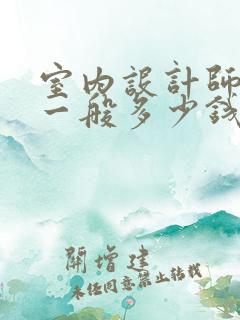 室內設計師
一般多少錢
開增建
未任同意禁止轉載